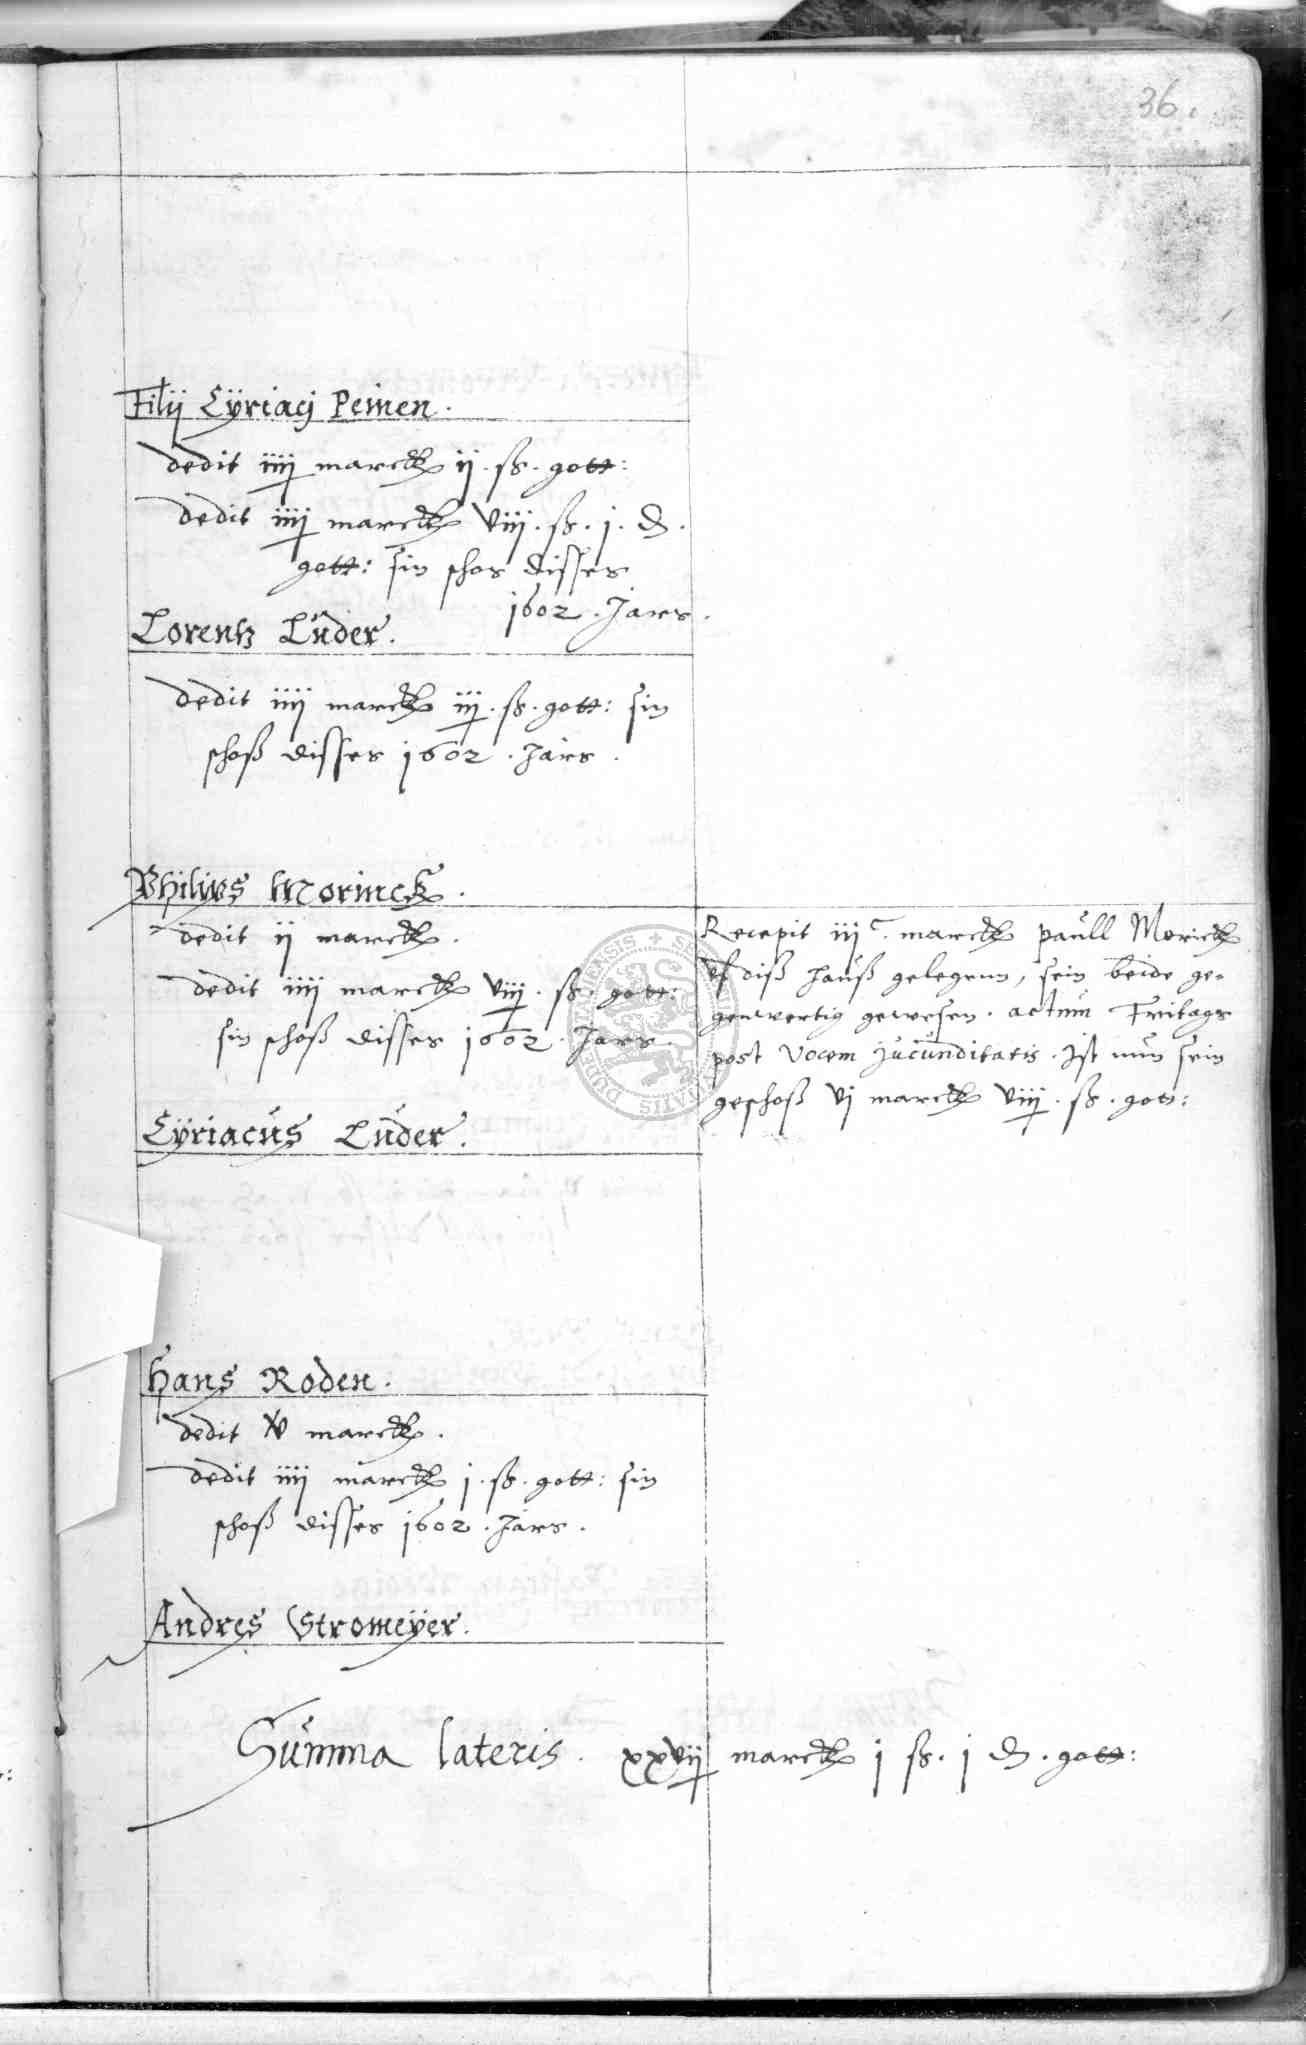 36.
Filij Cÿriacj Peinen.
dedit iiij marck ij. ß. gott:
dedit iiij marck viij. ß. j. d.
gott: sin schos disses
1602. Jars.
Lorentz Lüder.
dedit iiij marck iij. ß. gott: sin
schoß disses 1602. Jars.
Philips Morinck.
dedit ij marck.
dedit iiij marck viij. ß. gott:
sin schoß disses 1602. Jars.
Recepit iijc. marck paull Morick
uf diß hauß gelegenn, sein beide ge-
genwertig gewesen. actum Fritags
post Vocem jucunditatis. Ist nun sein
geschoß vj marck viij. ß. gott:
Cÿriacus Lüder.
Hans Roden.
dedit v marck.
dedit iiij marck j. ß. gott: sin
schoß disses 1602. Jars.
Andres Stromeÿer.
Summa lateris. xxvij marck j ß. j d. gott: